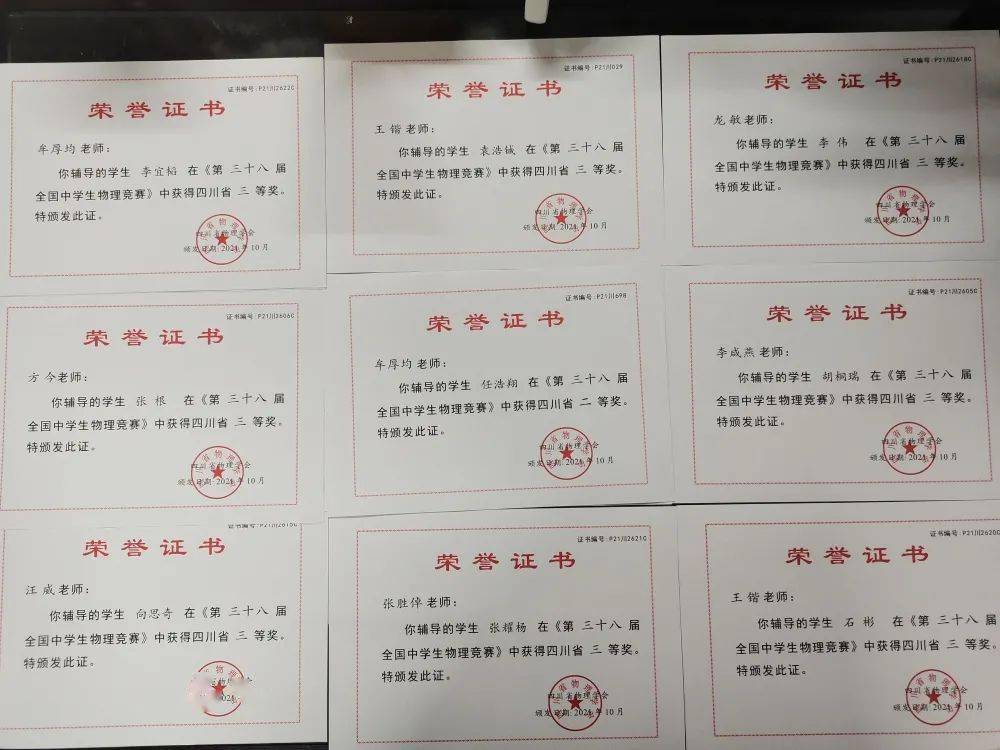 证书编号:P21川2622C
荣誉证书
牟厚均 老师:
你辅导的学生 李宜韬 在《第 三十八 届
全国中学生物理竞赛》中获得四川省 三 等奖。
特颁发此证。
四川省物理学会
颁发日期:2021 年 10 月
证书编号:P21川029
荣誉证书
王 锴 老师:
你辅导的学生 袁浩诚 在《第 三十八 届
全国中学生物理竞赛》中获得四川省 三 等奖。
特颁发此证。
四川省物理学会
颁发日期:2021 年 10 月
证书编号:P21川2618C
荣誉证书
龙 敏 老师:
你辅导的学生 李 伟 在《第 三十八 届
全国中学生物理竞赛》中获得四川省 三 等奖。
特颁发此证。
四川省物理学会
颁发日期:2021 年 10 月
证书编号:P21川2606C
荣誉证书
方 今 老师:
你辅导的学生 张 根 在《第 三十八 届
全国中学生物理竞赛》中获得四川省 三 等奖。
特颁发此证。
四川省物理学会
颁发日期:2021 年 10 月
证书编号:P21川698
荣誉证书
牟厚均 老师:
你辅导的学生 任浩翔 在《第 三十八 届
全国中学生物理竞赛》中获得四川省 二 等奖。
特颁发此证。
四川省物理学会
颁发日期:2021 年 10 月
证书编号:P21川2605C
荣誉证书
李成燕 老师:
你辅导的学生 胡桐瑞 在《第 三十八 届
全国中学生物理竞赛》中获得四川省 三 等奖。
特颁发此证。
四川省物理学会
颁发日期:2021 年 10 月
证书编号:P21川2615C
荣誉证书
汪 威 老师:
你辅导的学生 向思奇 在《第 三十八 届
全国中学生物理竞赛》中获得四川省 三 等奖。
特颁发此证。
省物理学会
2021
证书编号:P21川2621C
荣誉证书
张胜倬 老师:
你辅导的学生 张耀杨 在《第 三十八 届
全国中学生物理竞赛》中获得四川省 三 等奖。
特颁发此证。
四川省物理学会
颁发日期:2021 年 10 月
证书编号:P21川2620C
荣誉证书
王 锴 老师:
你辅导的学生 石 彬 在《第 三十八 届
全国中学生物理竞赛》中获得四川省 三 等奖。
特颁发此证。
四川省物理学会
颁发日期:2021 年 10 月